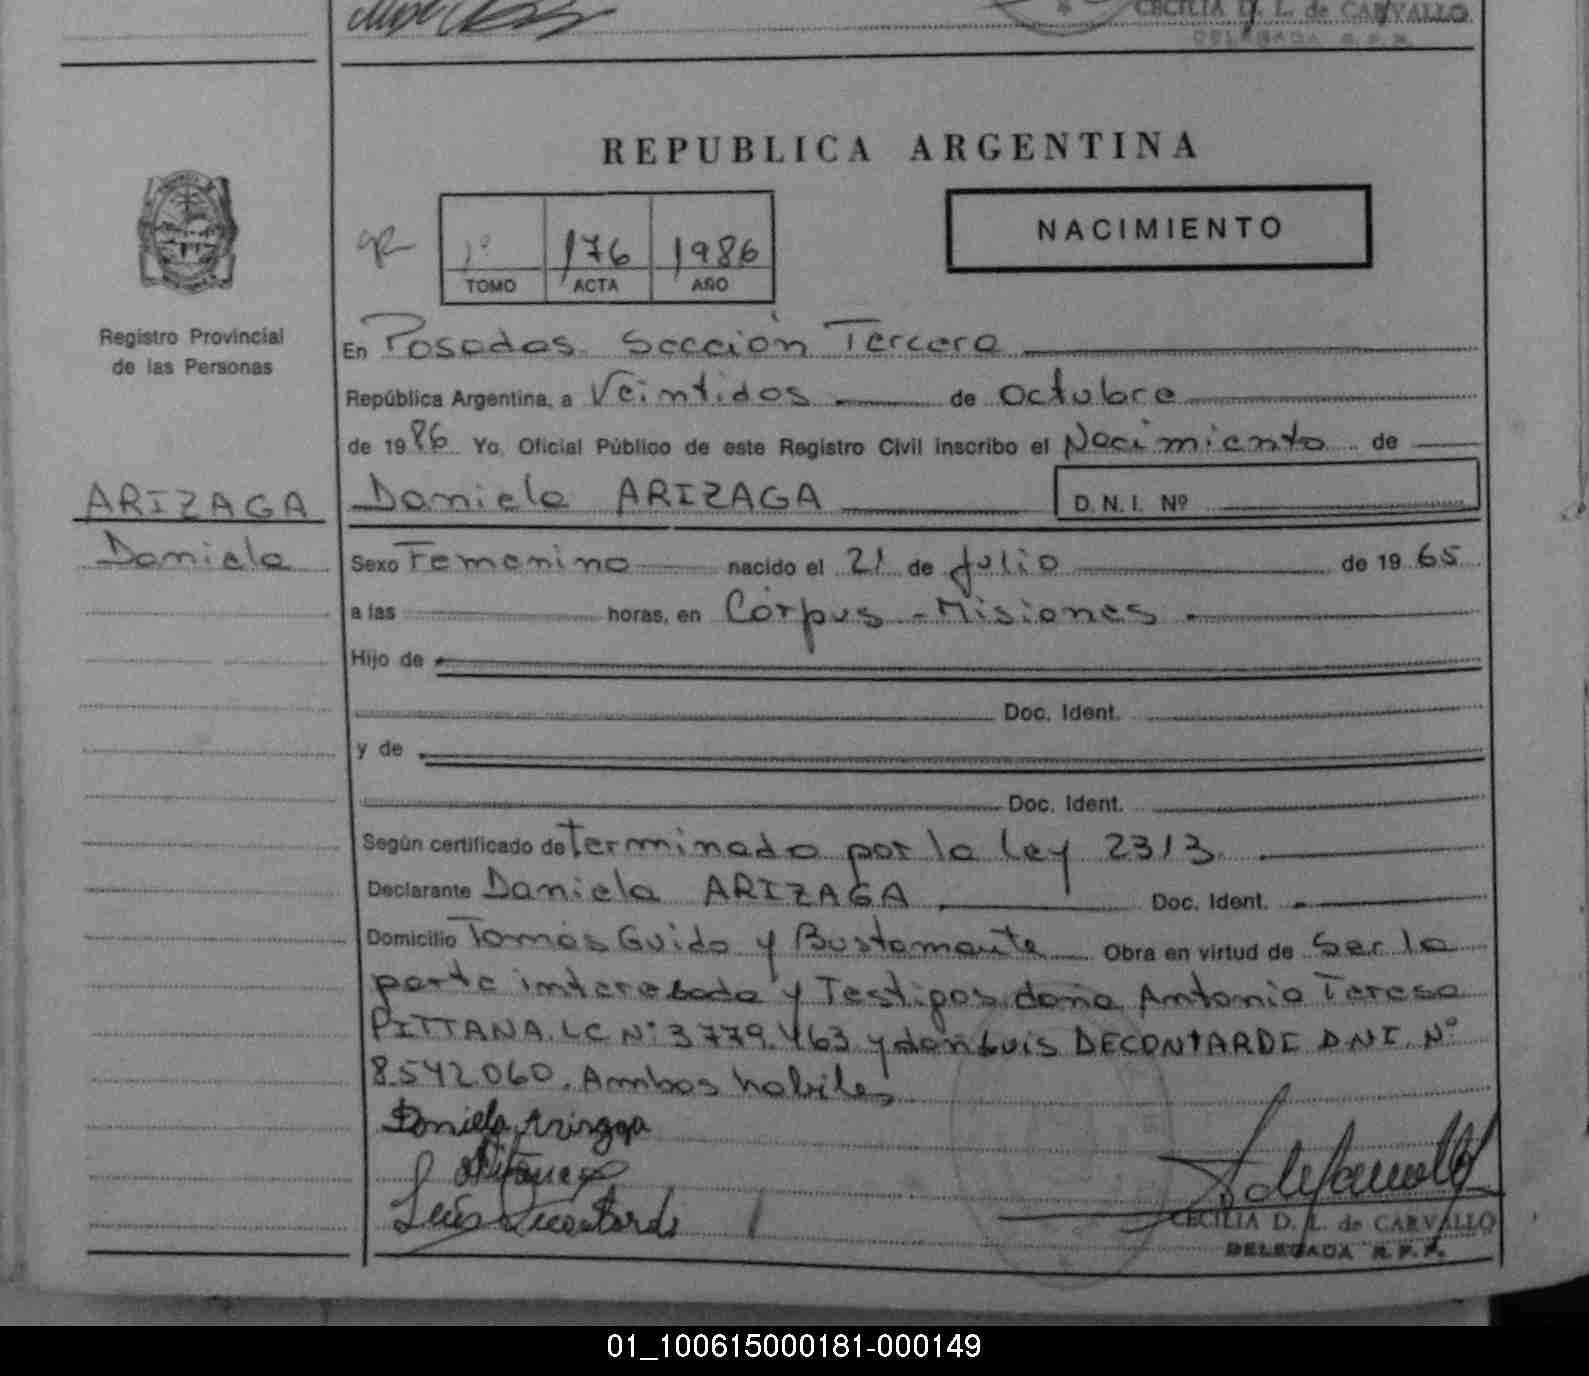 CECILIA D. L. de CARVALLO
DELEGADA R. P. P.
REPUBLICA ARGENTINA
NACIMIENTO
1º 176 1986
TOMO ACTA AÑO
Registro Provincial
de las Personas
En Posadas Sección Tercera
República Argentina, a Veintidos de Octubre
de 1986 Yo, Oficial Público de este Registro Civil inscribo el Nacimiento de
ARIZAGA
Daniela
Daniela ARIZAGA D. N. I. Nº
Sexo Femenino nacido el 21 de Julio de 1965
a las horas, en Corpus - Misiones
Hijo de
Doc. Ident.
y de
Doc. Ident.
Según certificado determinado por la ley 2313
Declarante Daniela ARIZAGA Doc. Ident.
Domicilio Tomás Guido y Bustamante Obra en virtud de Ser la
parte interesada y Testigos doña Antonia Teresa
PITTANA. LC Nº 3779.463 y don Luis DECONTARDE DNI. Nº
8.542.060. Ambos habiles
Daniela Arizaga
Luis Decontarde
CECILIA D. L. de CARVALLO
DELEGADA R. P. P.
01_100615000181-000149